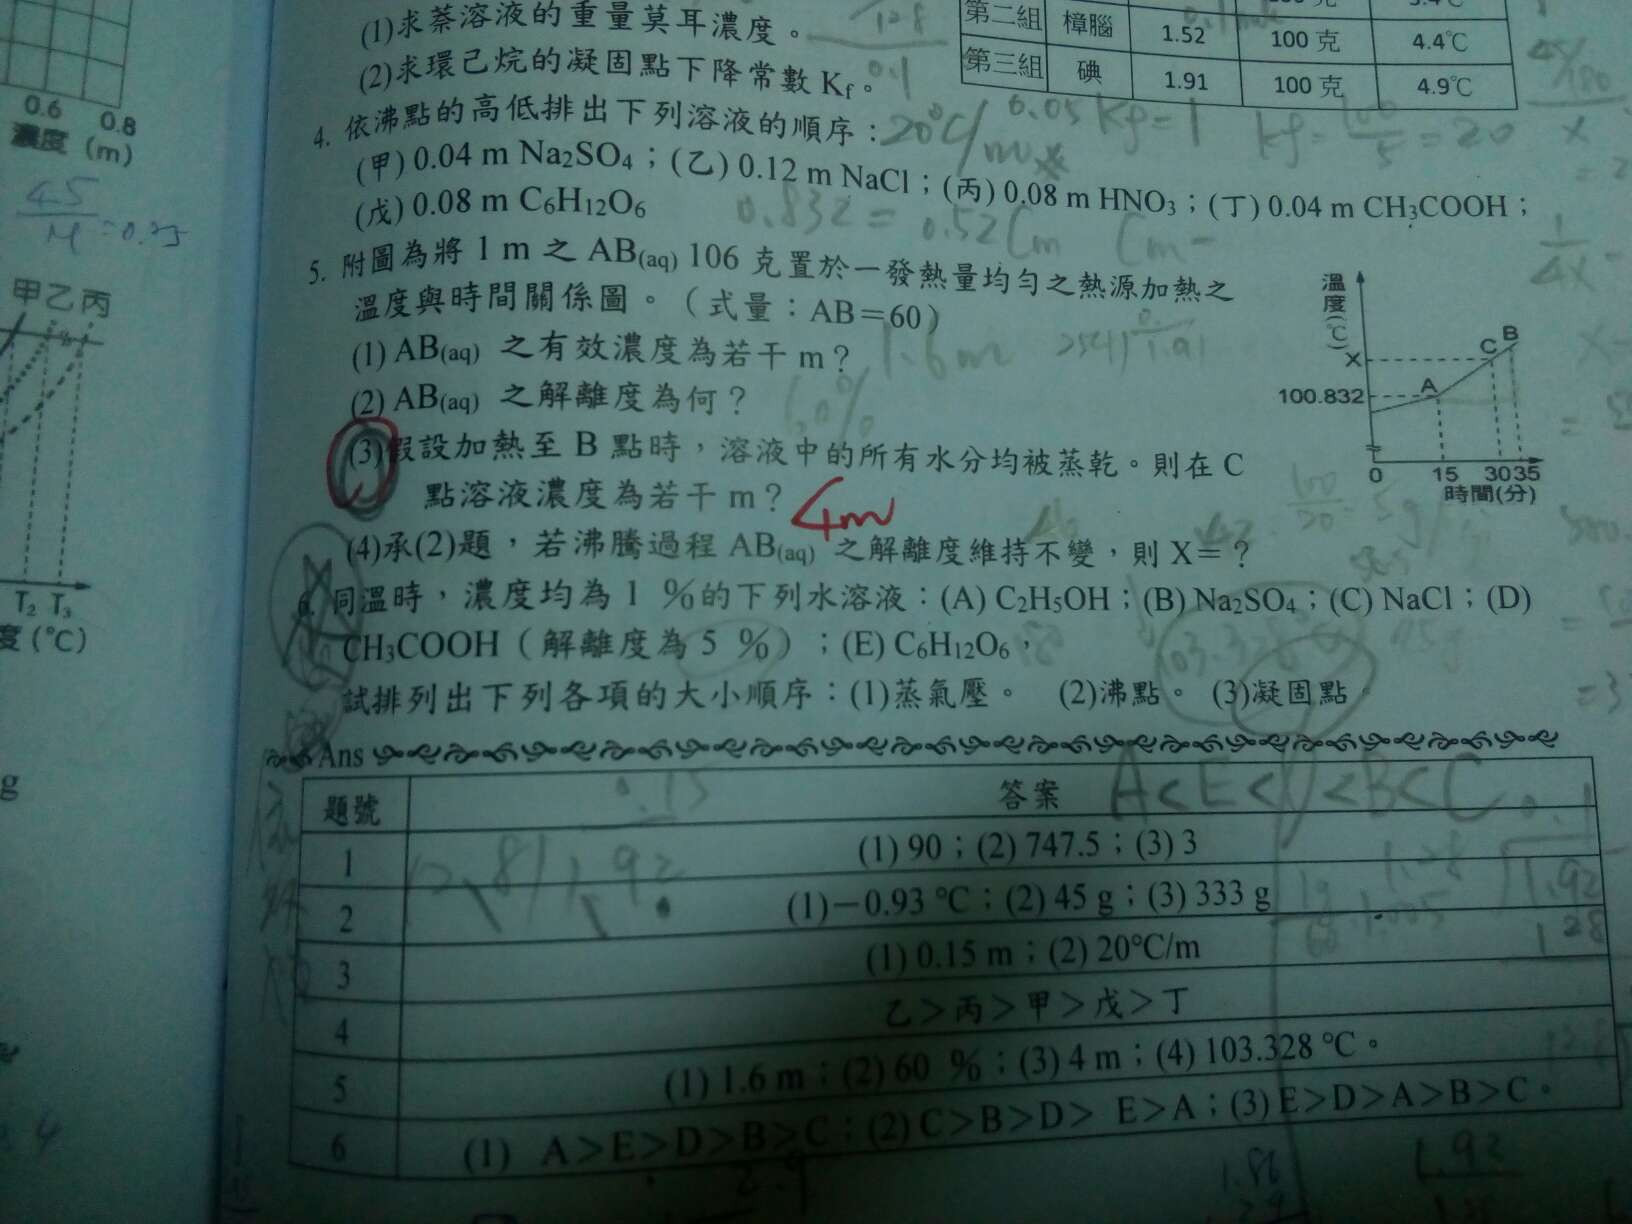 (1)求萘溶液的重量莫耳濃度。
(2)求環己烷的凝固點下降常數 Kf。
第二組 樟腦 1.52 100 克 4.4℃
第三組 碘 1.91 100 克 4.9℃
0.6 0.8
濃度 (m)
4. 依沸點的高低排出下列溶液的順序:
(甲) 0.04 m Na2SO4;(乙) 0.12 m NaCl;(丙) 0.08 m HNO3;(丁) 0.04 m CH3COOH;
(戊) 0.08 m C6H12O6
20℃/m
0.05 kf=1
kf=100/5=20
0.832=0.52Cm
甲乙丙
T2 T3
度(℃)
g
5. 附圖為將 1 m 之 AB(aq) 106 克置於一發熱量均勻之熱源加熱之
溫度與時間關係圖。(式量:AB=60)
(1) AB(aq) 之有效濃度為若干 m?
1.6m
(2) AB(aq) 之解離度為何?
60%
(3)假設加熱至 B 點時,溶液中的所有水分均被蒸乾。則在 C
點溶液濃度為若干 m?
4m
(4)承(2)題,若沸騰過程 AB(aq) 之解離度維持不變,則 X=?
溫度(℃)
X
100.832
A
C
B
0 15 30 35
時間(分)
6. 同溫時,濃度均為 1 %的下列水溶液:(A) C2H5OH;(B) Na2SO4;(C) NaCl;(D)
CH3COOH(解離度為 5 %);(E) C6H12O6,
103.328
試排列出下列各項的大小順序:(1)蒸氣壓。 (2)沸點。 (3)凝固點。
Ans
A<E<D<B<C
題號 答案
1 (1) 90;(2) 747.5;(3) 3
2 (1)−0.93 ℃;(2) 45 g;(3) 333 g
3 (1) 0.15 m;(2) 20℃/m
4 乙>丙>甲>戊>丁
5 (1) 1.6 m;(2) 60 %;(3) 4 m;(4) 103.328 ℃。
6 (1) A>E>D>B>C;(2) C>B>D> E>A;(3) E>D>A>B>C。